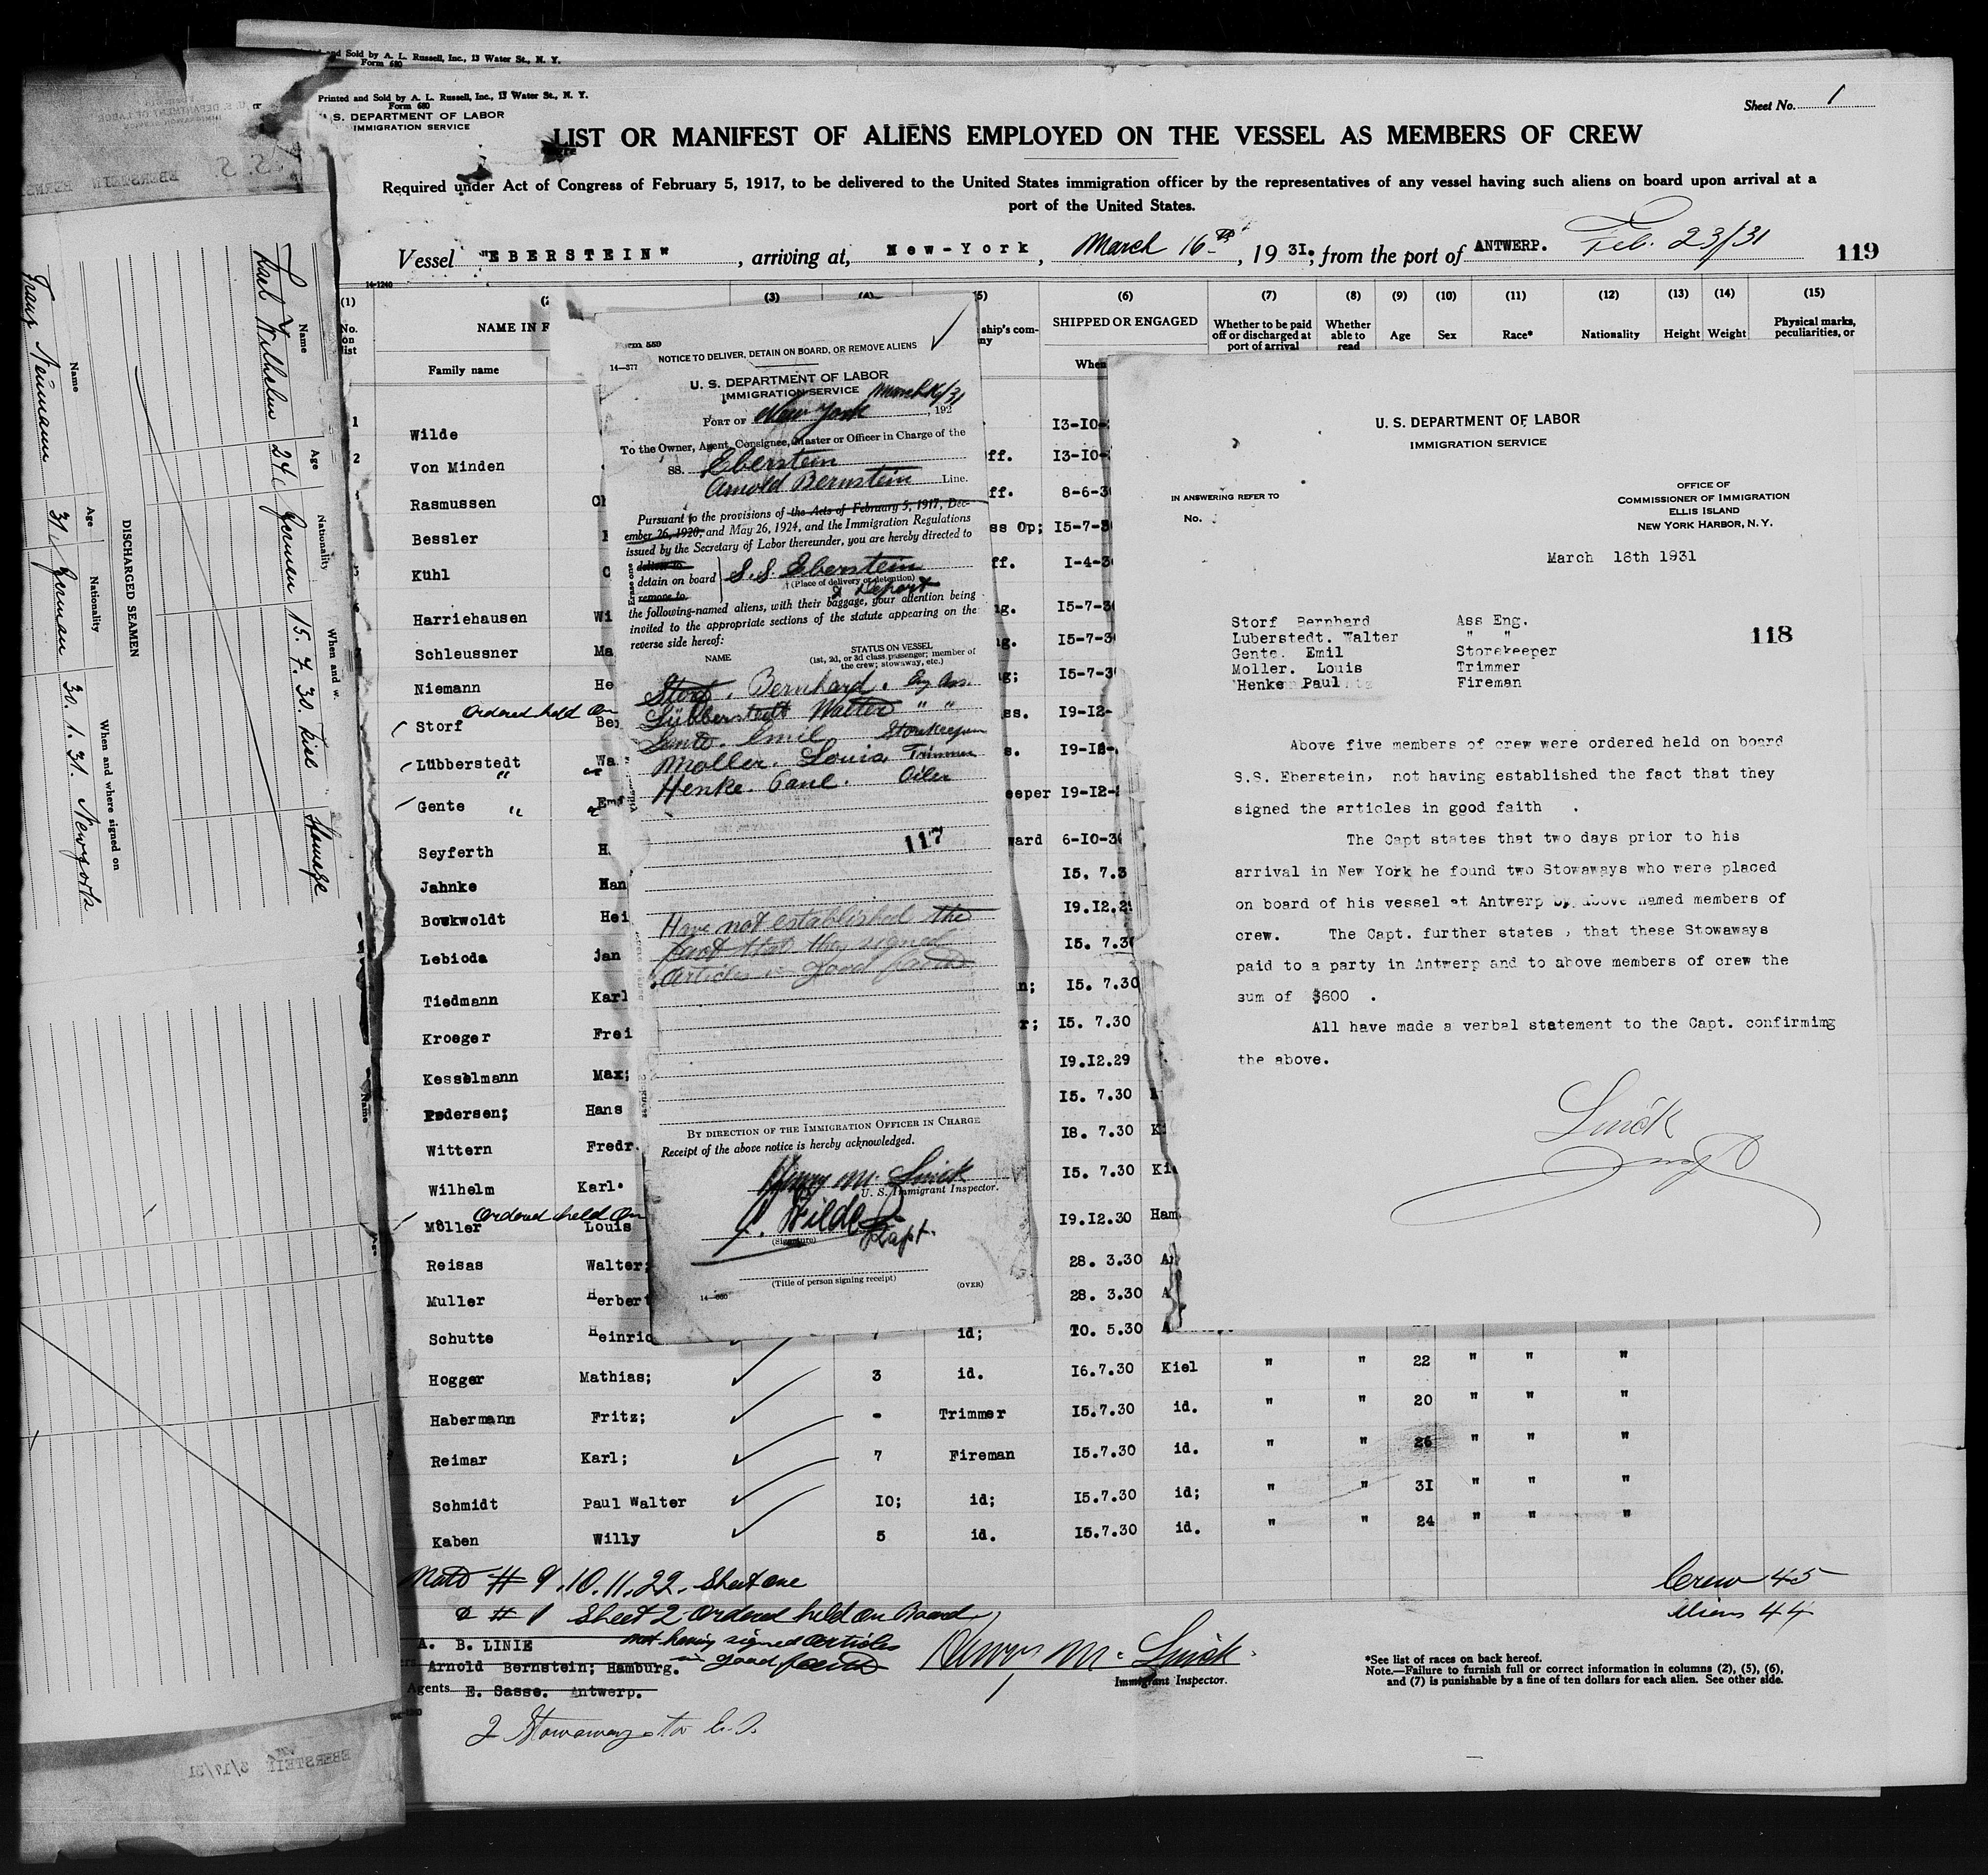 and Sold by A. L. Russell, Inc., 13 Water St., N. Y.
Form 680
Printed and Sold by A. L. Russell, Inc., 13 Water St., N. Y.
Form 680
U. S. DEPARTMENT OF LABOR
IMMIGRATION SERVICE
Sheet No. 1
LIST OR MANIFEST OF ALIENS EMPLOYED ON THE VESSEL AS MEMBERS OF CREW
Required under Act of Congress of February 5, 1917, to be delivered to the United States immigration officer by the representatives of any vessel having such aliens on board upon arrival at a
port of the United States.
Vessel "EBERSTEIN", arriving at, New-York, March 16th, 1931; from the port of ANTWERP. Feb. 23/31
119
14-1240
(1) (3) (5) (6) (7) (8) (9) (10) (11) (12) (13) (14) (15)
No. on list
NAME IN F
ship's com-
ny
SHIPPED OR ENGAGED
Whether to be paid off or discharged at port of arrival
Whether able to read
Age
Sex
Race*
Nationality
Height
Weight
Physical marks, peculiarities, or
Family name
When
1 Wilde 13-10-
2 Von Minden ff. 13-10-
Rasmussen ff. 8-6-3
Bessler ss Op; 15-7-3
Kühl ff. 1-4-3
Harriehausen Wi ng. 15-7-3
Schleussner Ma ng. 15-7-3
Niemann He g; 15-7-3
Ordered held On
Storf Be ss. 19-12-
Lübberstedt Wa s. 19-12-
Gente " Em eeper 19-12-
Seyferth H ward 6-10-3
Jahnke Han 15. 7.3
Bowkwoldt Hei 19.12.2
Lebioda jan 15. 7.3
Tiedmann Karl n; 15. 7.30
Kroeger Frei r; 15. 7.30
Kesselmann Max; 19.12.29
Pedersen; Hans 15. 7.30
Wittern Fredr. 18. 7.30 K
Wilhelm Karl. 15. 7.30 Ki
Ordered held On
Möller Louis 19.12.30 Ham
Reisas Walter; 28. 3.30 A
Muller Herbert 28. 3.30 A
Schutte Heinric id; 10. 5.30 A
Hogger Mathias; 3 id. 16.7.30 Kiel " " 22 " " "
Habermann Fritz; - Trimmer 15.7.30 id. " " 20 " " "
Reimar Karl; 7 Fireman 15.7.30 id. " " 26 " " "
Schmidt Paul Walter 10; id; 15.7.30 id; " " 31 " " "
Kaben Willy 5 id. 15.7.30 id. " " 24 " " "
# 9.10.11.22. Sheet one
& # 1 Sheet 2 Ordered held On Board
not having signed articles
in good faith
Crew 45
Aliens 44
A. B. LINIE
Arnold Bernstein; Hamburg.
Agents E. Sasse. Antwerp.
Henry M. Linick
Immigrant Inspector.
*See list of races on back hereof.
Note.—Failure to furnish full or correct information in columns (2), (5), (6),
and (7) is punishable by a fine of ten dollars for each alien. See other side.
2 Stowaways
Form 559
NOTICE TO DELIVER, DETAIN ON BOARD, OR REMOVE ALIENS
14—377
U. S. DEPARTMENT OF LABOR
IMMIGRATION SERVICE
March 16/31
PORT OF New York, 192
To the Owner, Agent, Consignee, Master or Officer in Charge of the
SS. Eberstein
Arnold Bernstein Line.
Pursuant to the provisions of the Acts of February 5, 1917, Dec-
ember 26, 1920, and May 26, 1924, and the Immigration Regulations
issued by the Secretary of Labor thereunder, you are hereby directed to
Erase one
deliver to
detain on board S.S. Eberstein
remove to
(Place of delivery or detention)
& Deport
the following-named aliens, with their baggage, your attention being
invited to the appropriate sections of the statute appearing on the
reverse side hereof:
NAME
STATUS ON VESSEL
(1st, 2d, or 3d class passenger; member of
the crew; stowaway, etc.)
Storf. Bernhard. Eng Ass.
Lübberstedt Walter " "
Gente. Emil Storekeeper
Moller. Louis Trimmer
Henke. Paul. Oiler
117
Have not established the
fact that they signed
articles in good faith
BY DIRECTION OF THE IMMIGRATION OFFICER IN CHARGE
Receipt of the above notice is hereby acknowledged.
Henry M. Linick
U. S. Immigrant Inspector.
Wilde
Kapt.
(Signature)
(Title of person signing receipt)
(OVER)
U. S. DEPARTMENT OF LABOR
IMMIGRATION SERVICE
IN ANSWERING REFER TO
No.
OFFICE OF
COMMISSIONER OF IMMIGRATION
ELLIS ISLAND
NEW YORK HARBOR, N. Y.
March 16th 1931
118
Storf Bernhard Ass Eng.
Luberstedt. Walter " "
Gente. Emil Storekeeper
Moller. Louis Trimmer
Henke Paul Fireman
Above five members of crew were ordered held on board
S.S. Eberstein, not having established the fact that they
signed the articles in good faith .
The Capt states that two days prior to his
arrival in New York he found two Stowaways who were placed
on board of his vessel at Antwerp by above named members of
crew. The Capt. further states , that these Stowaways
paid to a party in Antwerp and to above members of crew the
sum of $600 .
All have made a verbal statement to the Capt. confirming
the above.
Linick
Insp
DISCHARGED SEAMEN
Name Age Nationality When and w.
Karl Wilhelm 24 German 15. 7. 30. Kiel
Name Age Nationality When and where signed on
Franz Neumann 31 German 30. 1. 31. Newyork
Name
Age
EBERSTEIN 3/17/31